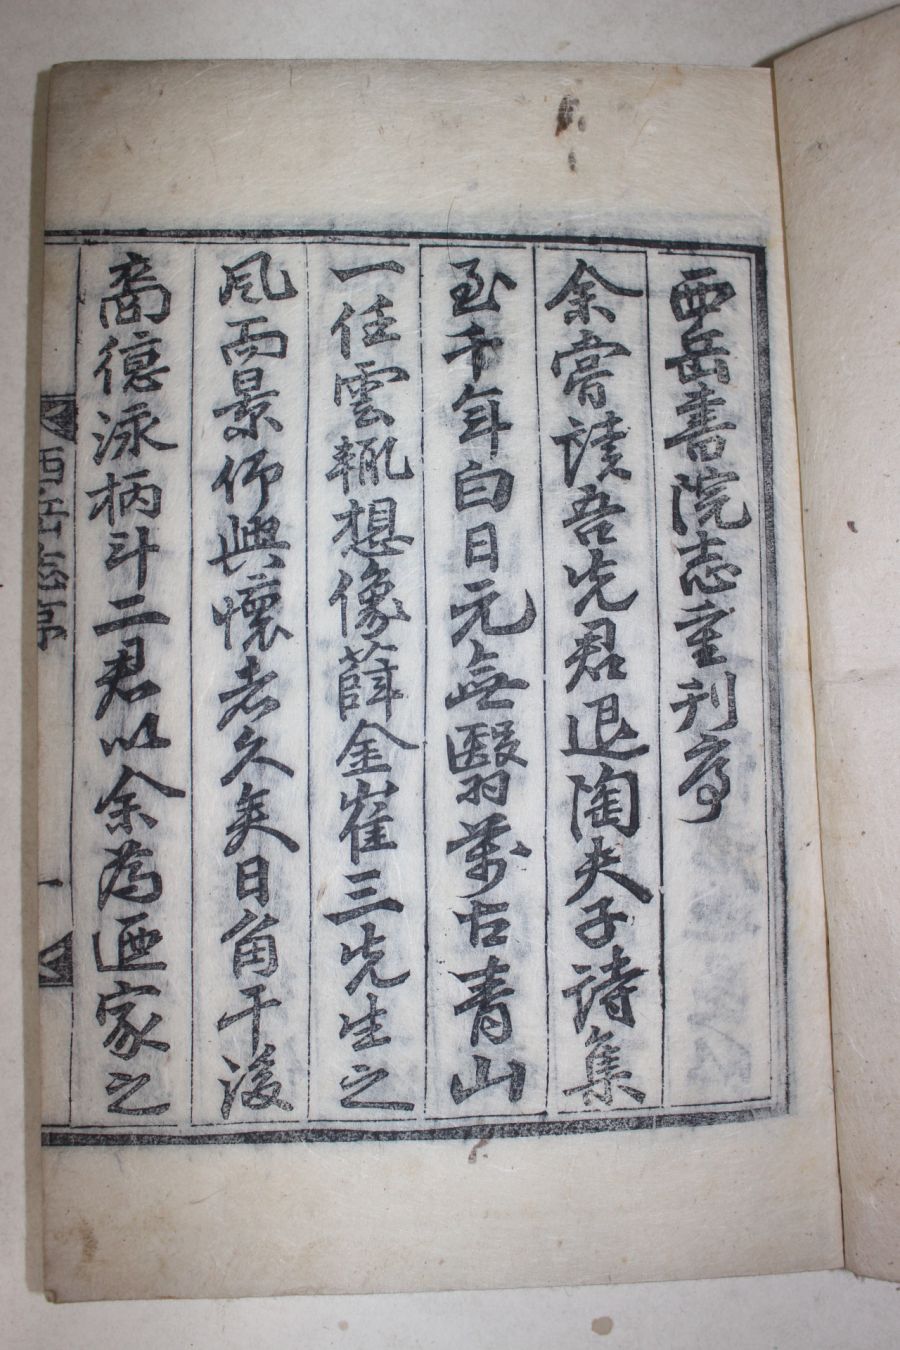 西岳書院志重刊序
余嘗讀吾先君退陶夫子詩集
至千年白日元無翳萬古青山
一任雲輒想像薛金崔三先生之
風而景仰興懷者久矣日角干後
裔德泳柄斗二君以余為迺家之